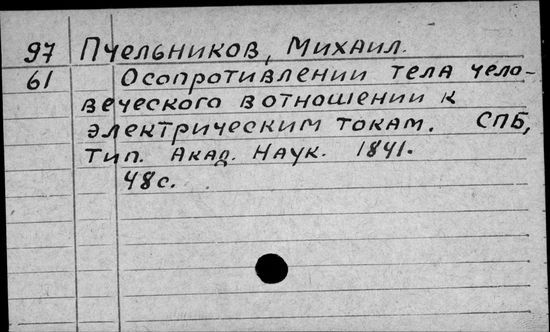 97 Пчельников, Михаил.
61 Осопротивлении тела чело-
веческого в отношении к
электрическим токам. СПБ,
Тип. Акад. Наук. 1841.
48с.